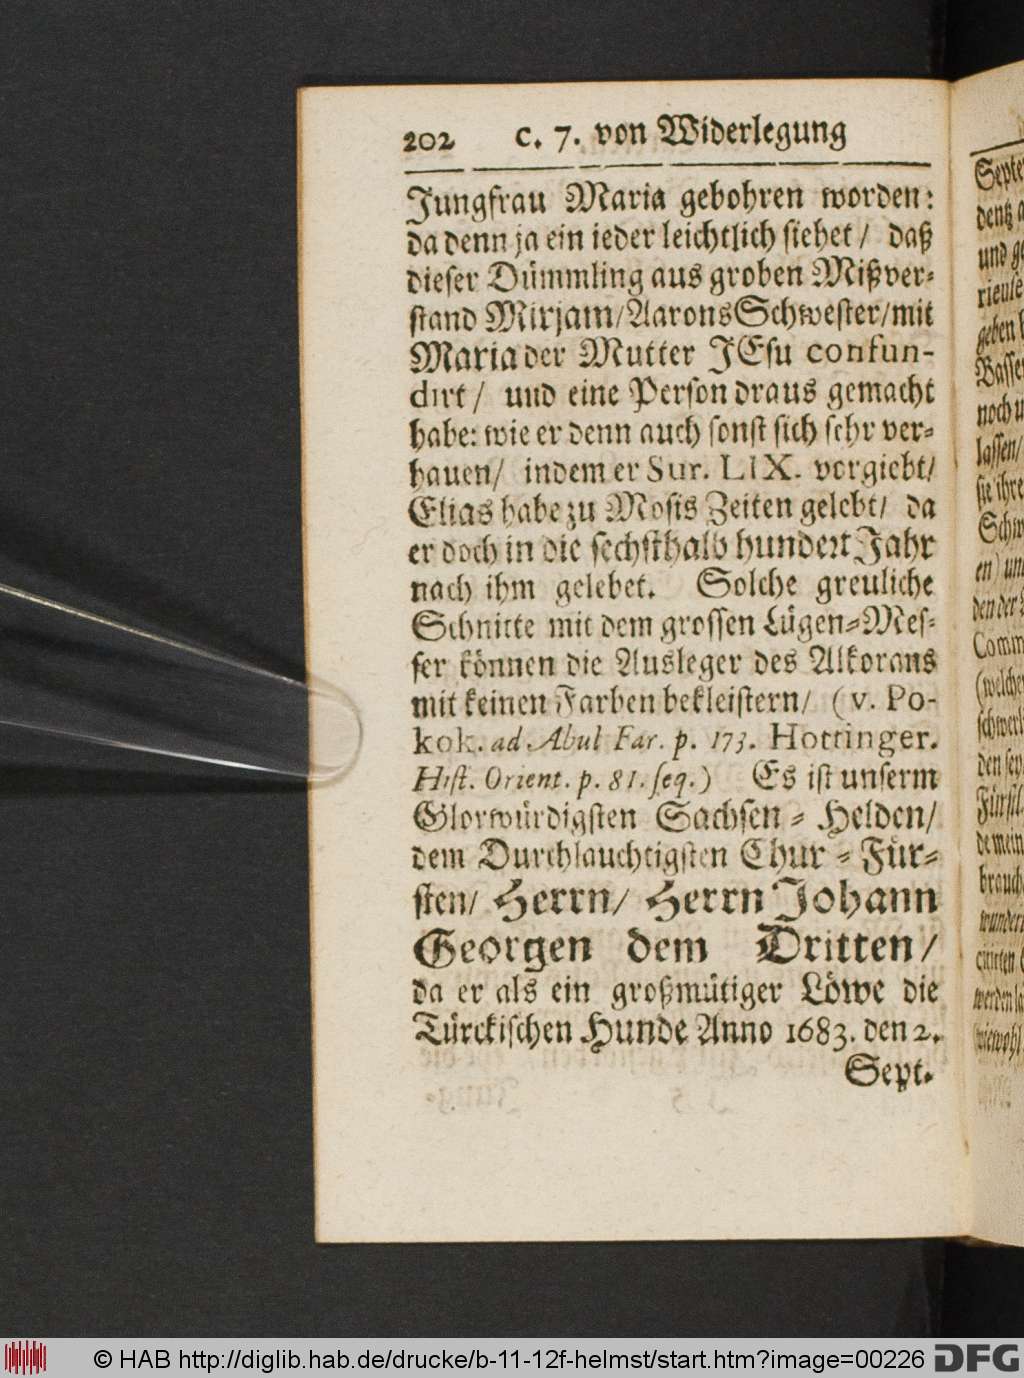 202 c. 7. von Widerlegung
Jungfrau Maria gebohren worden:
da denn ja ein ieder leichtlich siehet / daß
dieser Dümmling aus groben Mißver-
stand Mirjam/Aarons Schwester/mit
Maria der Mutter JEsu confun-
dirt / und eine Person draus gemacht
habe: wie er denn auch sonst sich sehr ver-
hauen/ indem er Sur. LIX. vorgiebt/
Elias habe zu Mosis Zeiten gelebt/ da
er doch in die sechsthalb hundert Jahr
nach ihm gelebet. Solche greuliche
Schnitte mit dem grossen Lügen-Mes-
ser können die Ausleger des Alkorans
mit keinen Farben bekleistern/ (v. Po-
kok. ad Abul Far. p. 173. Hottinger.
Hist. Orient. p. 81. seq.) Es ist unserm
Glorwürdigsten Sachsen-Helden/
dem Durchlauchtigsten Chur-Für-
sten/ Herrn/ Herrn Johann
Georgen dem Dritten/
da er als ein großmütiger Löwe die
Türckischen Hunde Anno 1683. den 2.
Sept.
Septe
dentz
und
geben
noch
lassen/
sie ihre
den der
Comm
(welche
den
brauch
© HAB http://diglib.hab.de/drucke/b-11-12f-helmst/start.htm?image=00226 DFG